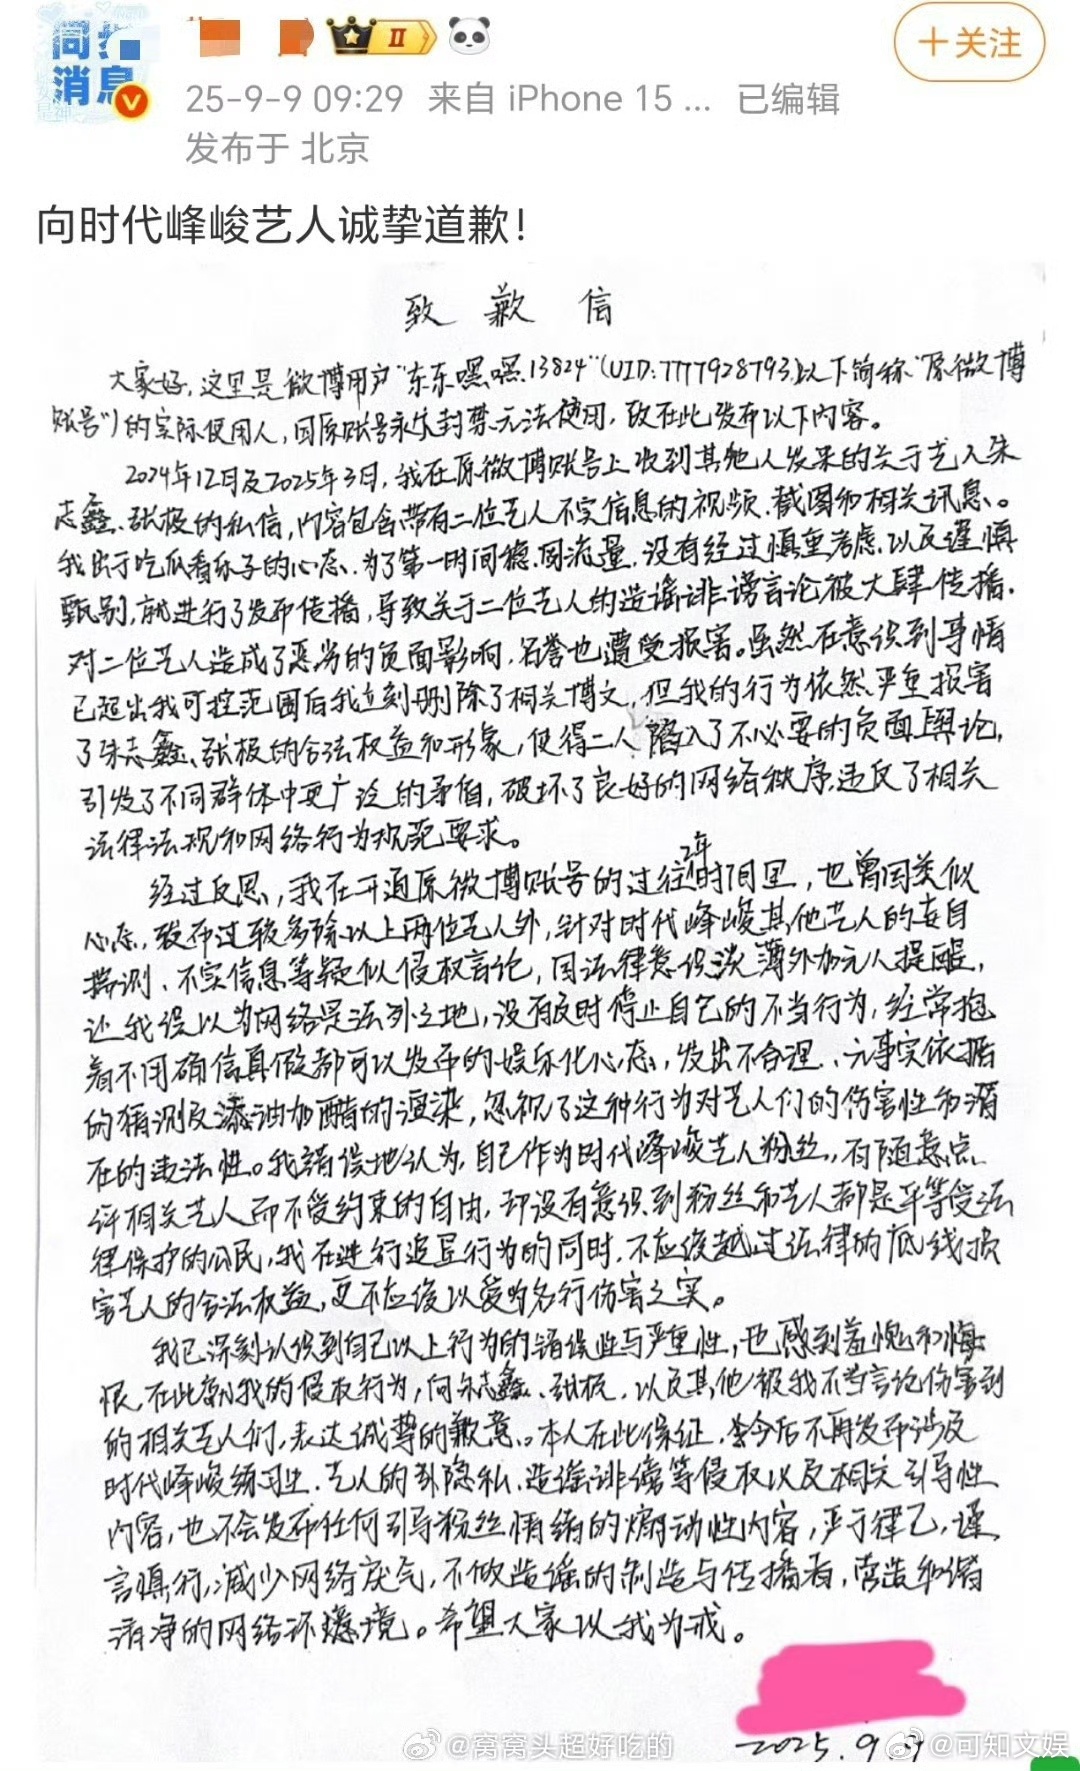 消息
II
+关注
25-9-9 09:29 来自 iPhone 15 ... 已编辑
发布于 北京
向时代峰峻艺人诚挚道歉!
致歉信
大家好,这里是微博用户“东东嘿嘿13824”(UID:7777928793,以下简称“原微博
账号”)的实际使用人,因原账号永久封禁无法使用,致在此发布以下内容。
2024年12月及2025年3月,我在原微博账号上收到其他人发来的关于艺人朱
志鑫、张极的私信,内容包含带有二位艺人不实信息的视频、截图和相关讯息。
我出于吃瓜看乐子的心态,为了第一时间稳固流量,没有经过慎重考虑,以及谨慎
甄别,就进行了发布传播,导致关于二位艺人的造谣诽谤言论被大肆传播,
对二位艺人造成了恶劣的负面影响,名誉也遭受损害。虽然在意识到事情
已超出我可控范围后我立刻删除了相关博文,但我的行为依然严重损害
了朱志鑫、张极的合法权益和形象,使得二人陷入了不必要的负面舆论,
引发了不同群体中更广泛的矛盾,破坏了良好的网络秩序,违反了相关
法律法规和网络行为规范要求。
经过反思,我在开通原微博账号的过往2年时间里,也曾因类似
心态,发布过较多除以上两位艺人外,针对时代峰峻其他艺人的妄自
揣测、不实信息等疑似侵权言论,因法律意识淡薄外加无人提醒,
让我误以为网络是法外之地,没有及时停止自己的不当行为,经常抱
着不用确信真假都可以发布的娱乐化心态,发出不合理、无事实依据
的猜测及添油加醋的渲染,忽视了这种行为对艺人们的伤害性和潜
在的违法性。我错误地认为,自己作为时代峰峻艺人粉丝,有随意点
评相关艺人而不受约束的自由,却没有意识到粉丝和艺人都是平等受法
律保护的公民,我在进行追星行为的同时,不应该越过法律的底线损
害艺人的合法权益,更不应该以爱为名行伤害之实。
我已深刻认识到自己以上行为的错误性与严重性,也感到羞愧和悔
恨,在此就我的侵权行为,向朱志鑫、张极,以及其他被我不当言论伤害到
的相关艺人们,表达诚挚的歉意。本人在此保证,今后不再发布涉及
时代峰峻练习生、艺人的非隐私、造谣诽谤等侵权以及相关引导性
内容,也不会发布任何引导粉丝情绪的煽动性内容,严于律己,谨
言慎行,减少网络戾气,不做造谣的制造与传播者,营造和谐
清净的网络环境。希望大家以我为戒。
2025.9.9
@窝窝头超好吃的
@可知文娱